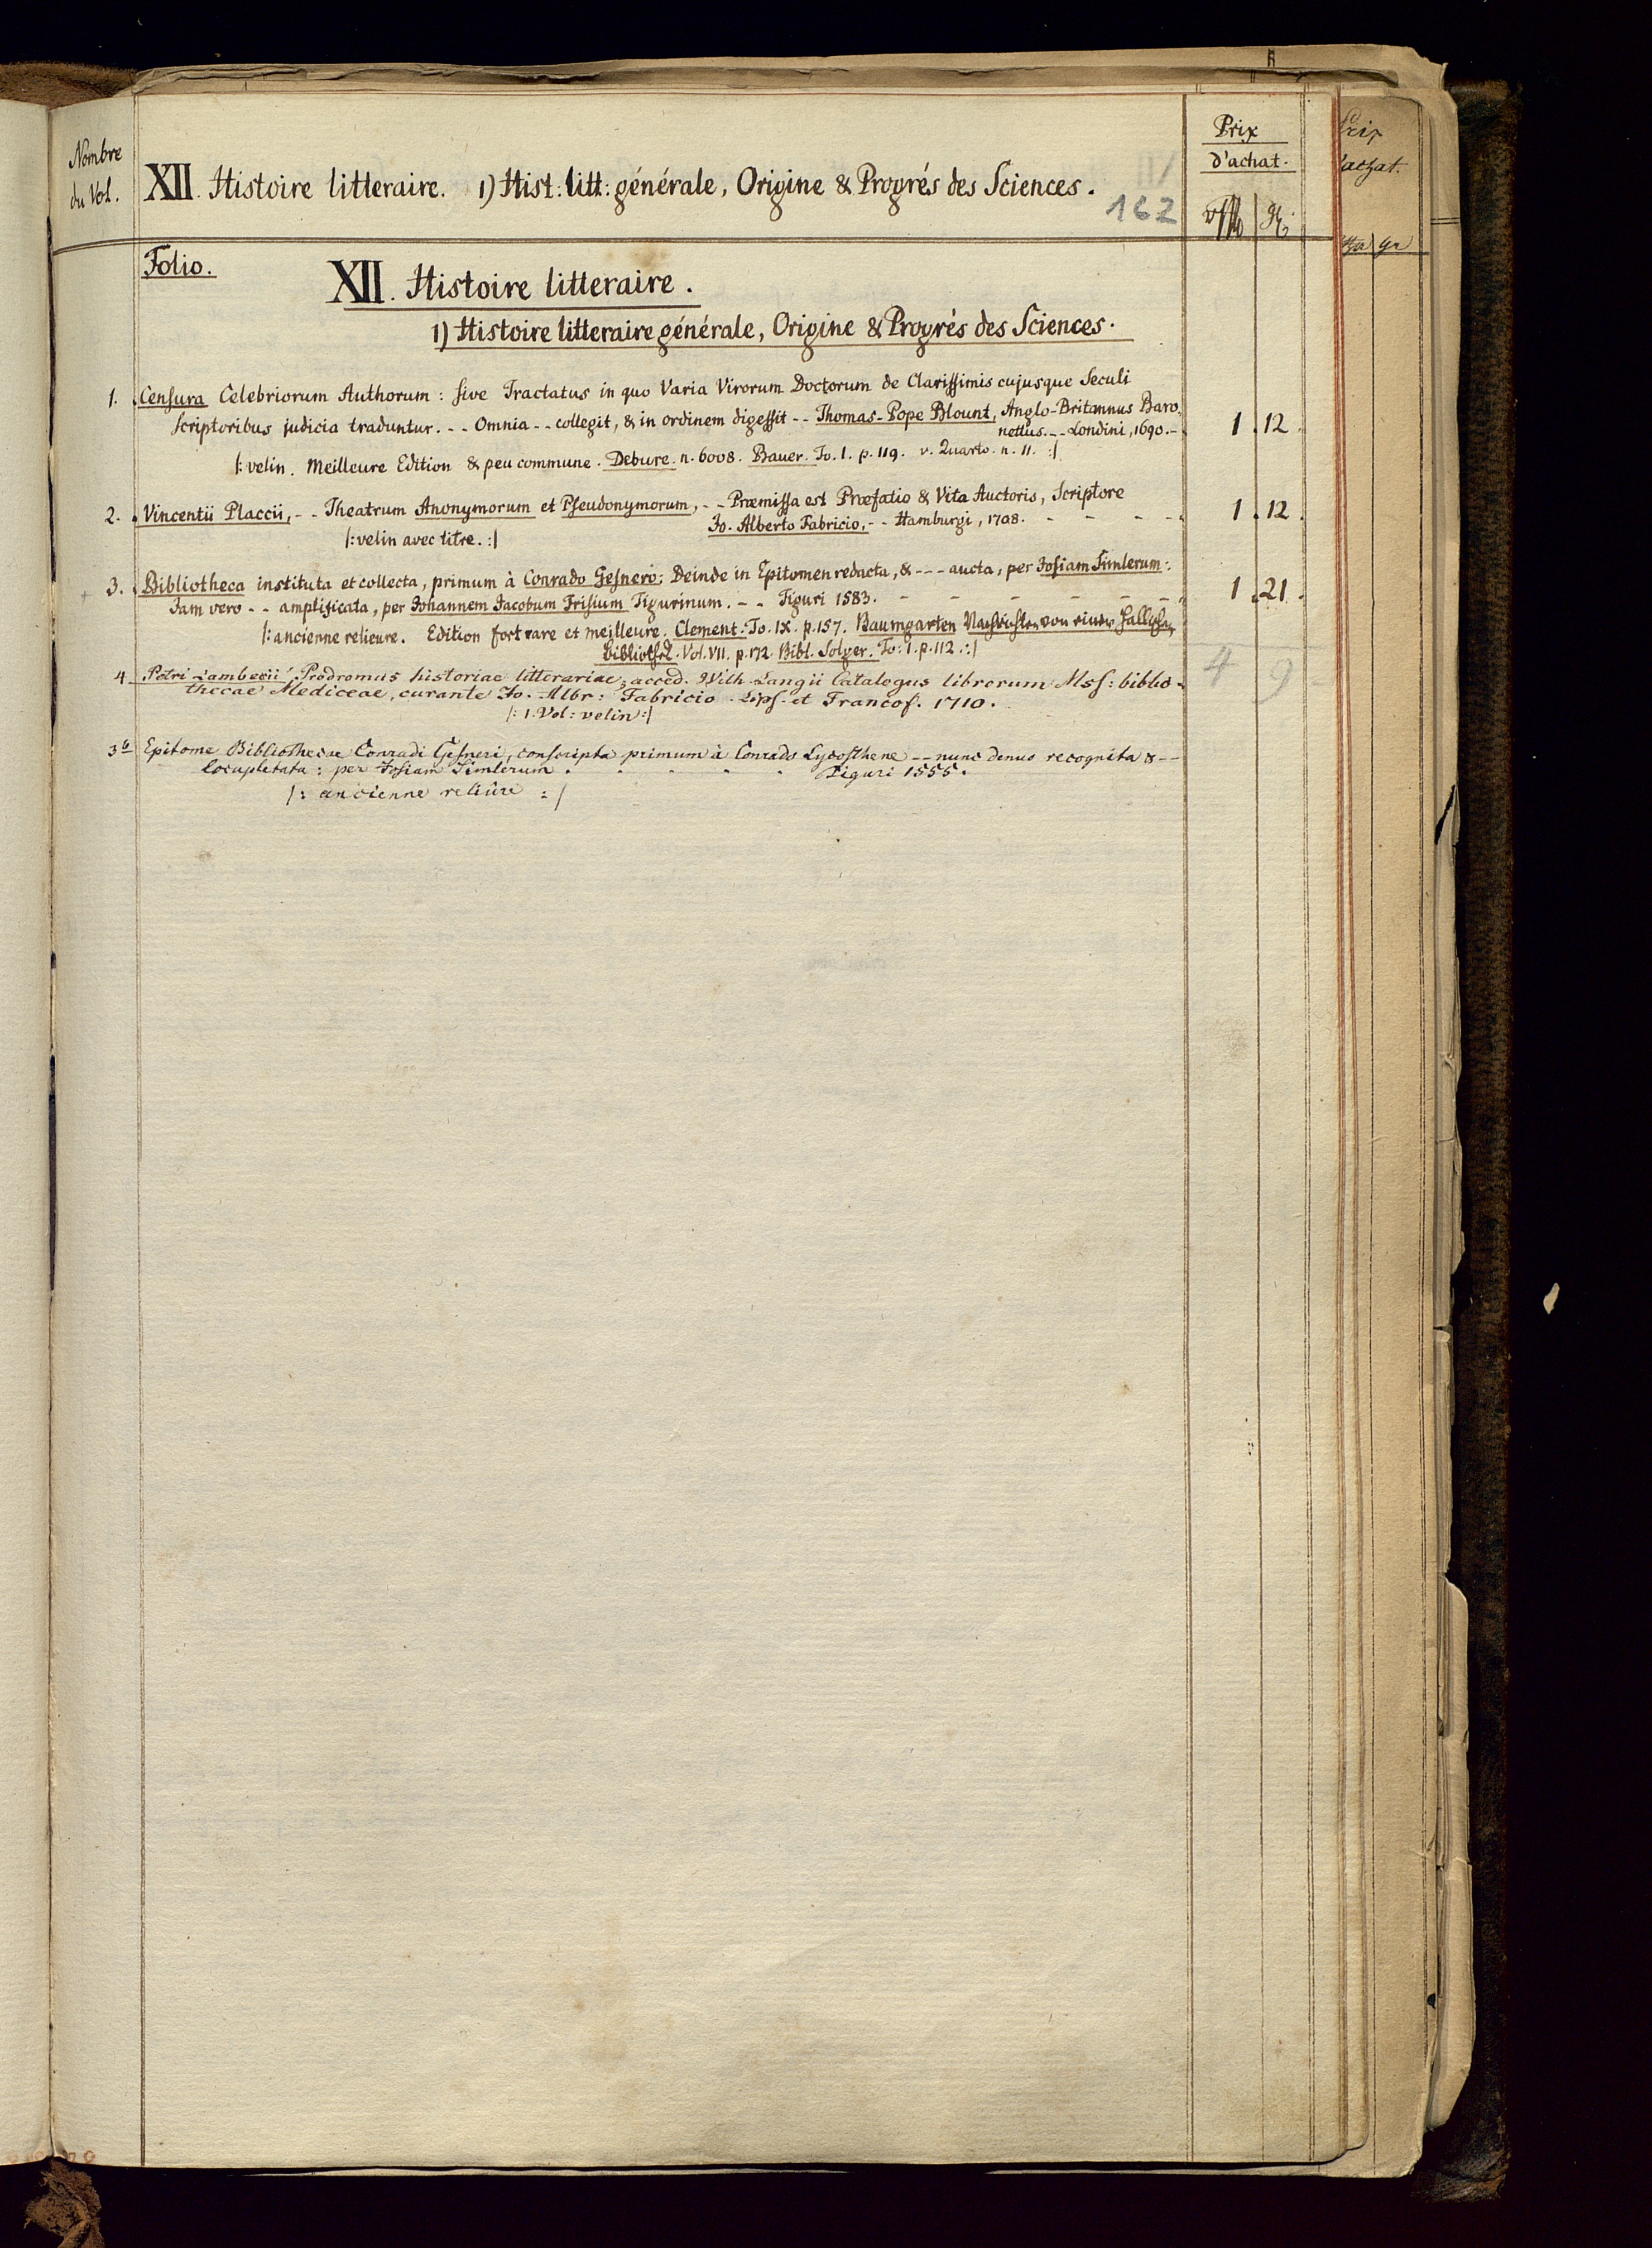 Nombre
du Vol.
XII. Histoire litteraire. 1) Hist: litt: générale, Origine & Progrés des Sciences.
162
Prix
d'achat.
Prix
d'achat.
gr
Folio.
XII. Histoire litteraire.
1) Histoire litteraire générale, Origine & Progrés des Sciences.
1. Censura Celebriorum Authorum: sive Tractatus in quo Varia Virorum Doctorum de Clarissimis cujusque Seculi
Scriptoribus judicia traduntur. -- Omnia -- collegit, & in ordinem digessit -- Thomas-Pope Blount, Anglo-Britannus Baro-
nettus. -- Londini, 1690. - 1. 12.
|: velin. Meilleure Edition & peu commune. Debure. n. 6008. Bauer. To. I. p. 119. v. Quarto. n. 11. :|
2. Vincentii Placcii, -- Theatrum Anonymorum et Pseudonymorum, -- Præmissa est Præfatio & Vita Auctoris, Scriptore
Jo. Alberto Fabricio, -- Hamburgi, 1708. - - - - 1. 12.
|: velin avec titre. :|
3. Bibliotheca instituta et collecta, primum à Conrado Gesnero; Deinde in Epitomen redacta, & --- aucta, per Josiam Simlerum:
Jam vero -- amplificata, per Johannem Jacobum Frisium Tigurinum. -- Tiguri 1583. - - - - - - 1. 21.
|: ancienne relieure. Edition fort rare et meilleure. Clement. To. IX. p. 157. Baumgarten Nachrichten von einer Hallischen
Bibliothek. Vol. VII. p. 172. Bibl. Solger. To: I. p. 112. :|
4. Petri Lambecii Prodromus historiae litterariae; acced. Wilh Langii Catalogus librorum Mss: biblio-
thecae Mediceae, curante Jo. Albr: Fabricio. Lips. et Francof. 1710. 4 9
|: 1. Vol: velin :|
3b Epitome Bibliothecae Conradi Gesneri, conscripta primum à Conrado Lycosthene -- nunc denuo recognita & --
locupletata: per Josiam Simlerum. . . . . Tiguri 1555.
|: ancienne reliûre :|